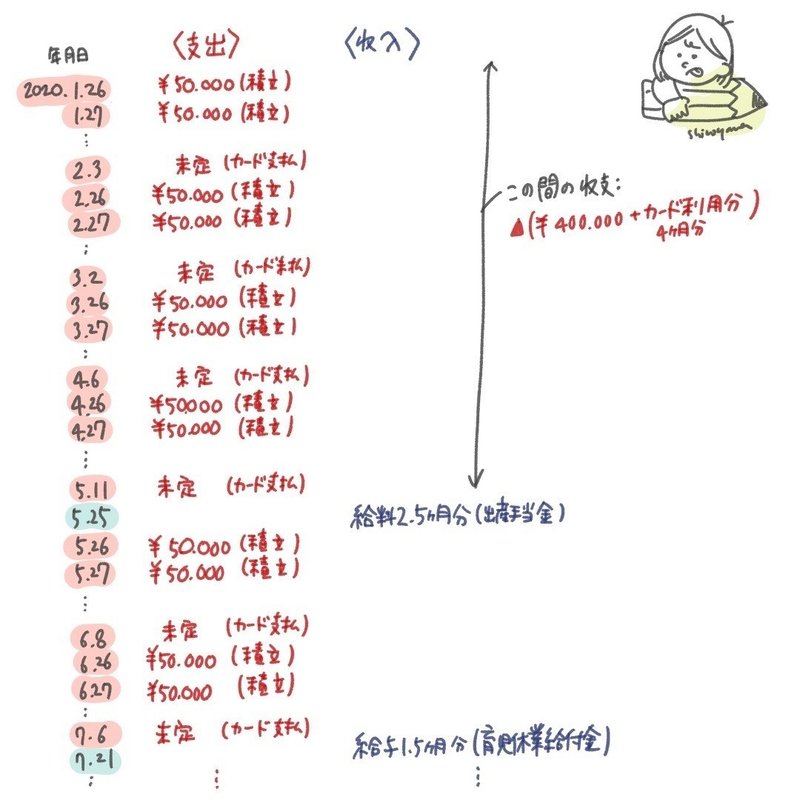 年月日 〈支出〉 〈収入〉
2020.1.26 ¥50.000(積立)
1.27 ¥50.000(積立)
⋮
2.3 未定 (カード支払)
2.26 ¥50.000(積立)
2.27 ¥50.000(積立)
⋮
この間の収支:
▲(¥400.000+カード利用分)
4ヶ月分
3.2 未定 (カード支払)
3.26 ¥50.000(積立)
3.27 ¥50.000(積立)
⋮
4.6 未定 (カード支払)
4.26 ¥50000(積立)
4.27 ¥50.000(積立)
⋮
5.11 未定 (カード支払)
5.25 給料2.5ヶ月分(出産手当金)
5.26 ¥50.000(積立)
5.27 ¥50.000(積立)
⋮
6.8 未定 (カード支払)
6.26 ¥50.000(積立)
6.27 ¥50.000 (積立)
⋮
7.6 未定 (カード支払)
7.21 給与1.5ヶ月分(育児休業給付金)
⋮ ⋮ ⋮